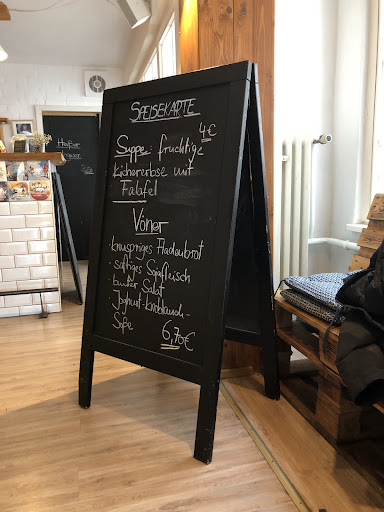 SPEISEKARTE
4€
Suppe: fruchtige
Kichererbse mit
Falafel
Vöner
·knuspriges Fladenbrot
·saftiges Sojafleisch
·bunter Salat
·Joghurt-Knoblauch-
Soße
6,70€